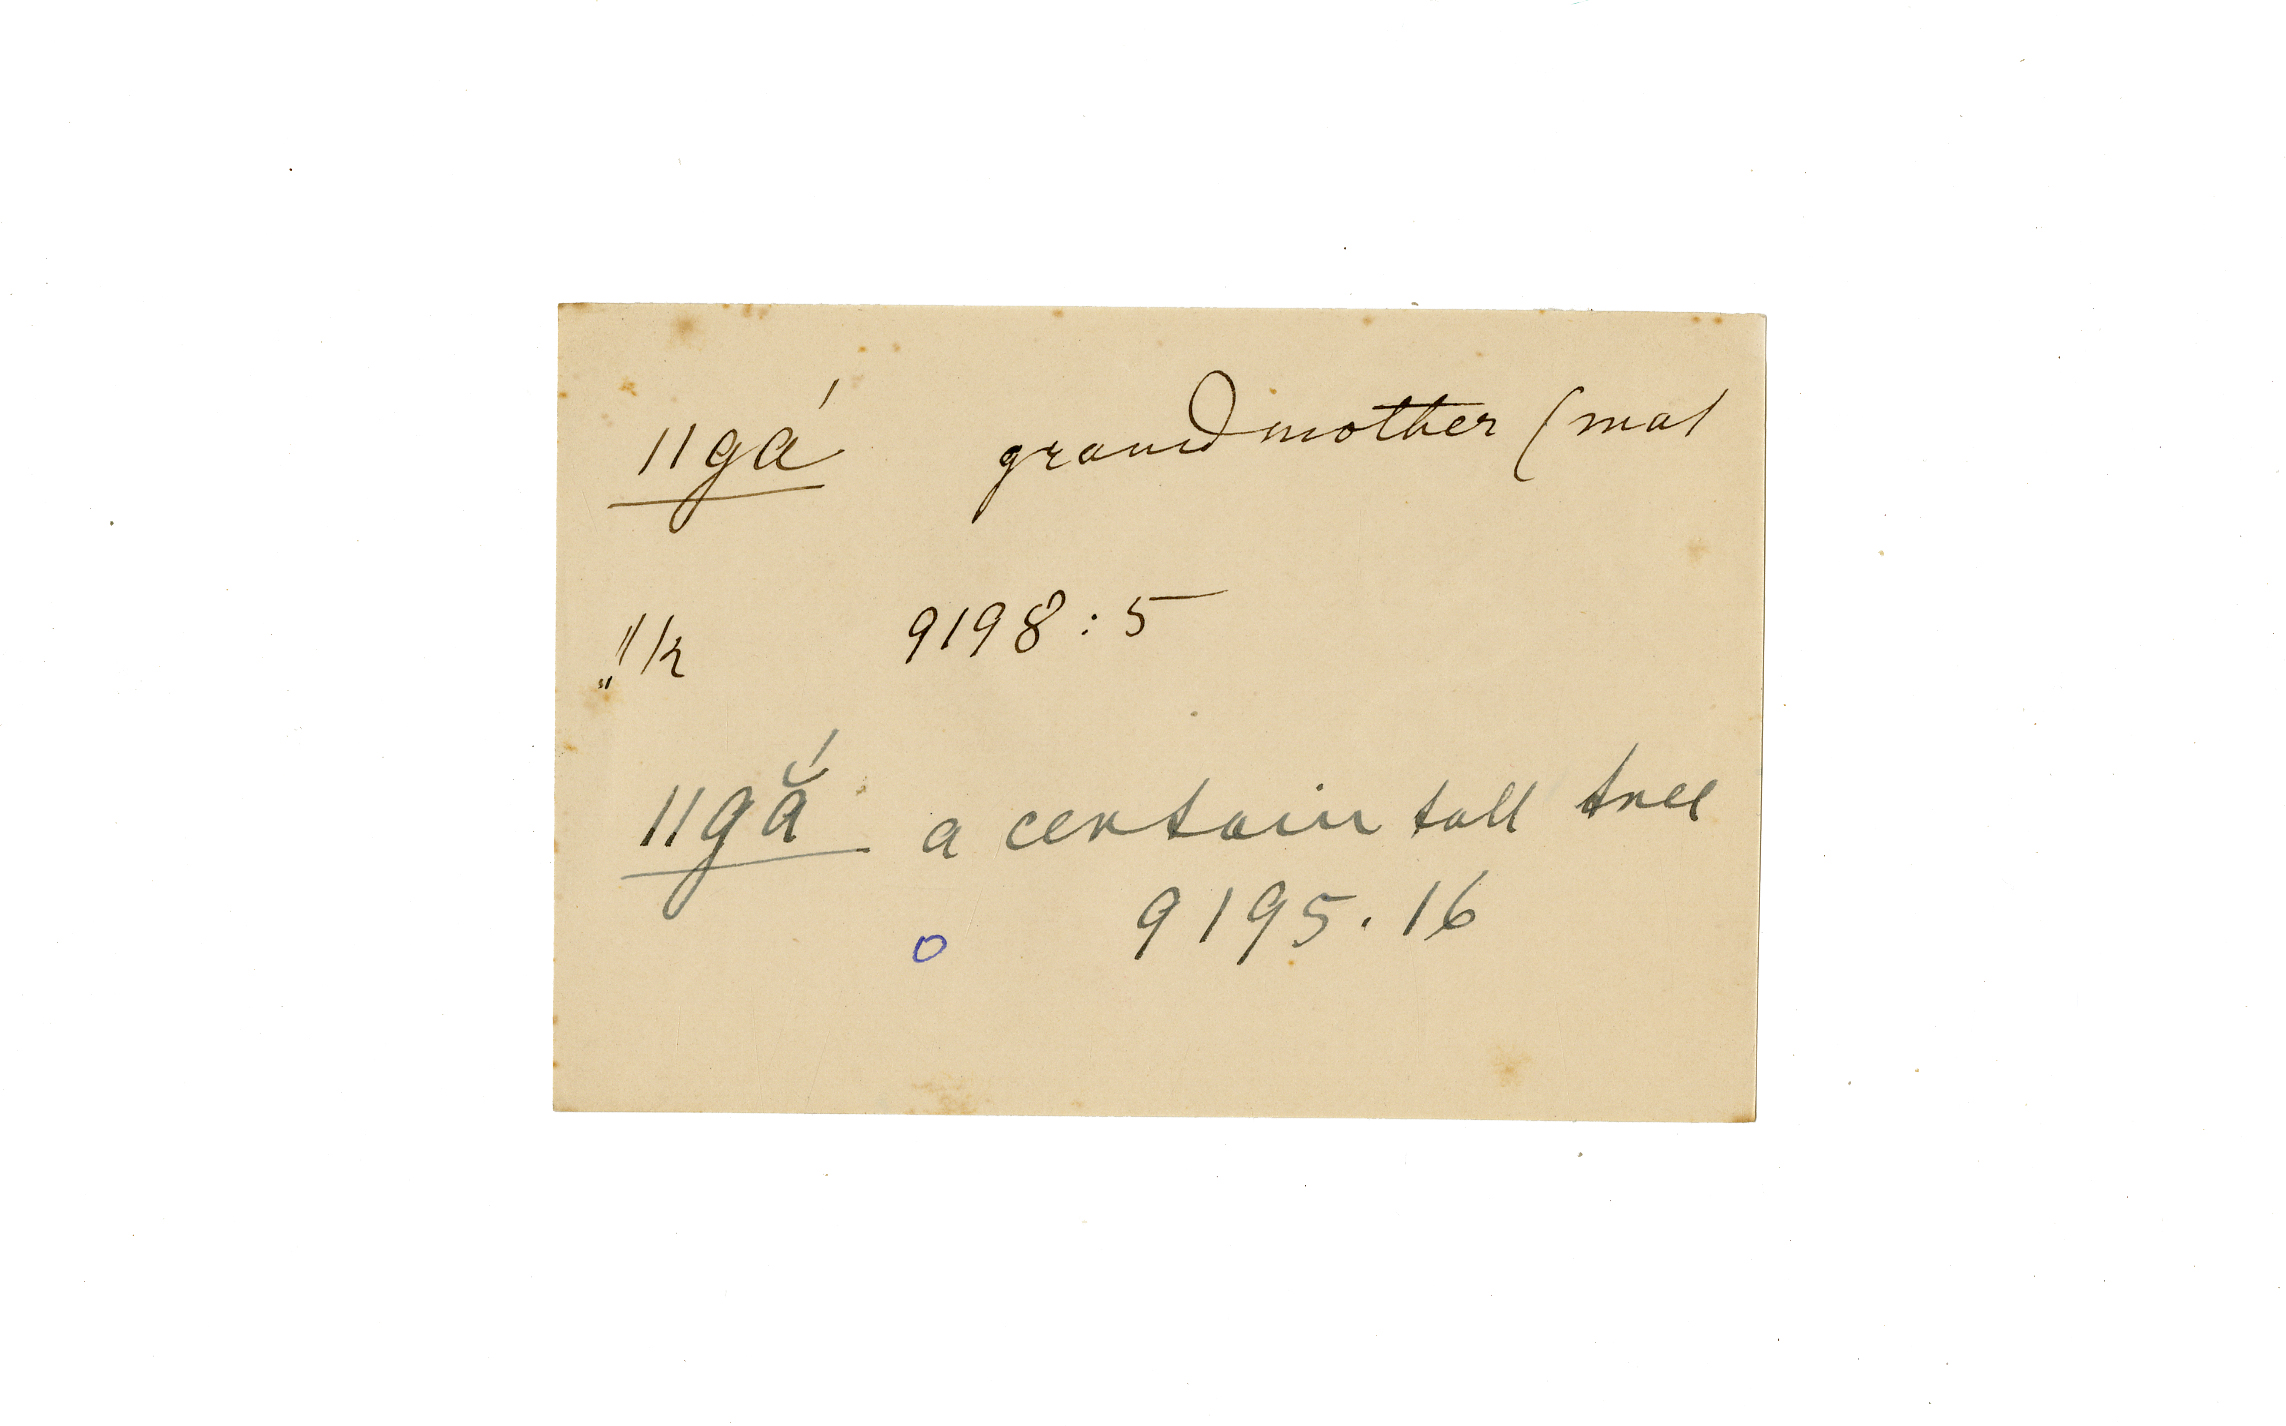 ǁgá grandmother (mat
‼k 9198:5
ǁgằ́ a certain tall tree
9195.16
o